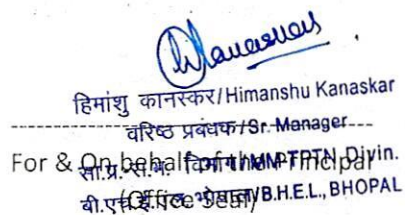 हिमांशु कानस्कर/Himanshu Kanaskar
वरिष्ठ प्रबंधक/Sr. Manager
For & On behalf of the Principal
सा.प्र.-सं.भ. विभाग/MMPTPTN Divin.
(Office Seal)
बी.एच.ई.एल. भोपाल/B.H.E.L., BHOPAL